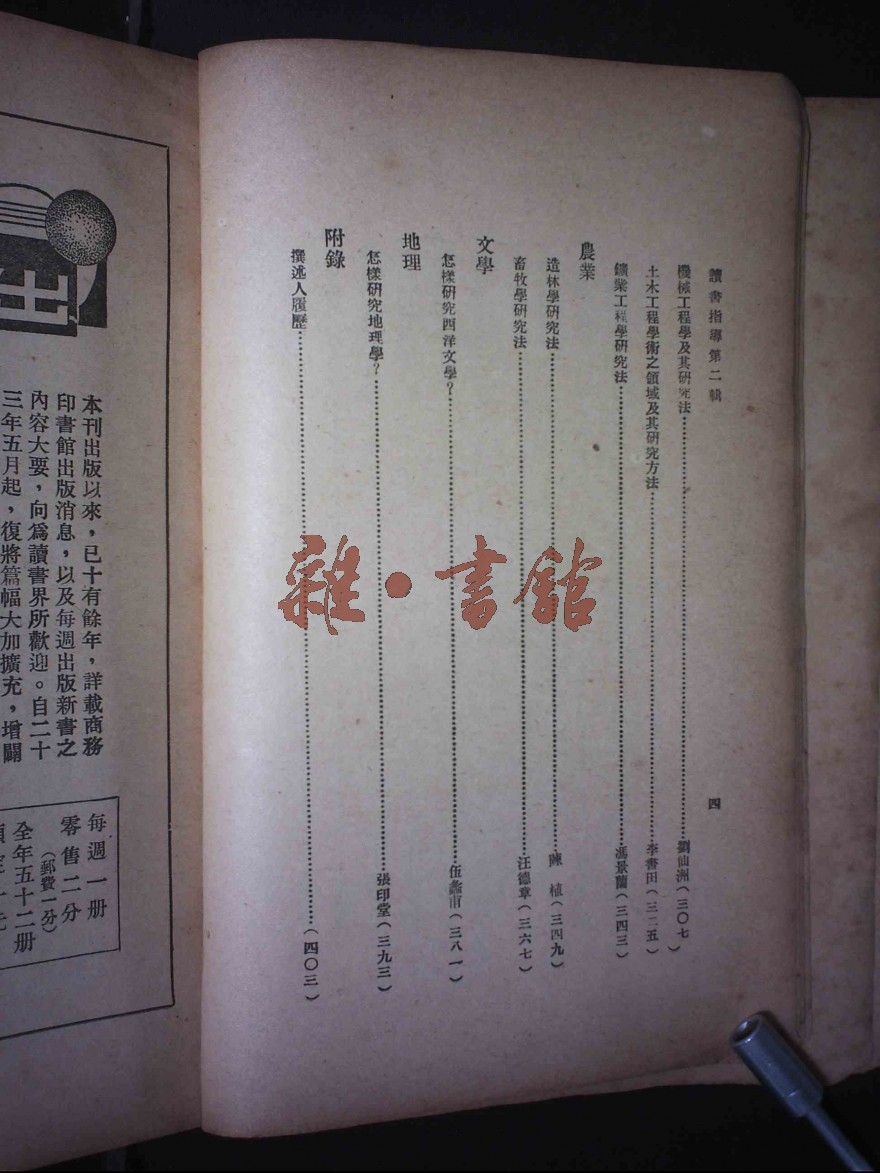 讀書指導第二輯
四
機械工程學及其研究法……劉仙洲(三〇七)
土木工程學術之領域及其研究方法……李書田(三二五)
鑛業工程學研究法……馮景蘭(三四三)
農業
造林學研究法……陳 植(三四九)
畜牧學研究法……汪德章(三六七)
文學
怎樣研究西洋文學?……伍蠡甫(三八一)
地理
怎樣研究地理學?……張印堂(三九三)
附錄
撰述人履歷……(四〇三)
雜·書館
本刊出版以來,已十有餘年,詳載商務
印書館出版消息,以及每週出版新書之
內容大要,向爲讀書界所歡迎。自二十
三年五月起,復將篇幅大加擴充,增闢
每週一册
零售二分
(郵費一分)
全年五十二册